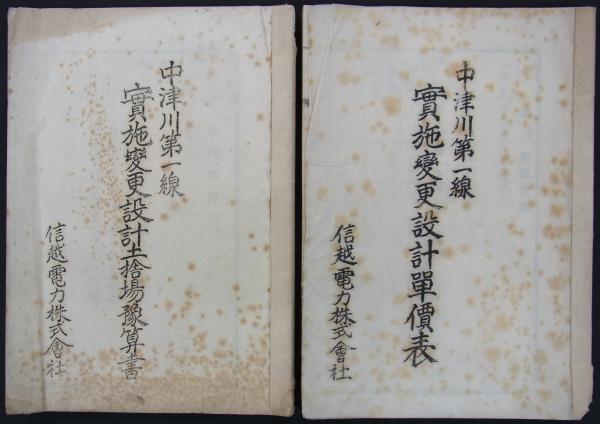 中津川第一線
實施變更設計單價表
信越電力株式會社
中津川第一線
實施變更設計土捨場豫算書
信越電力株式會社